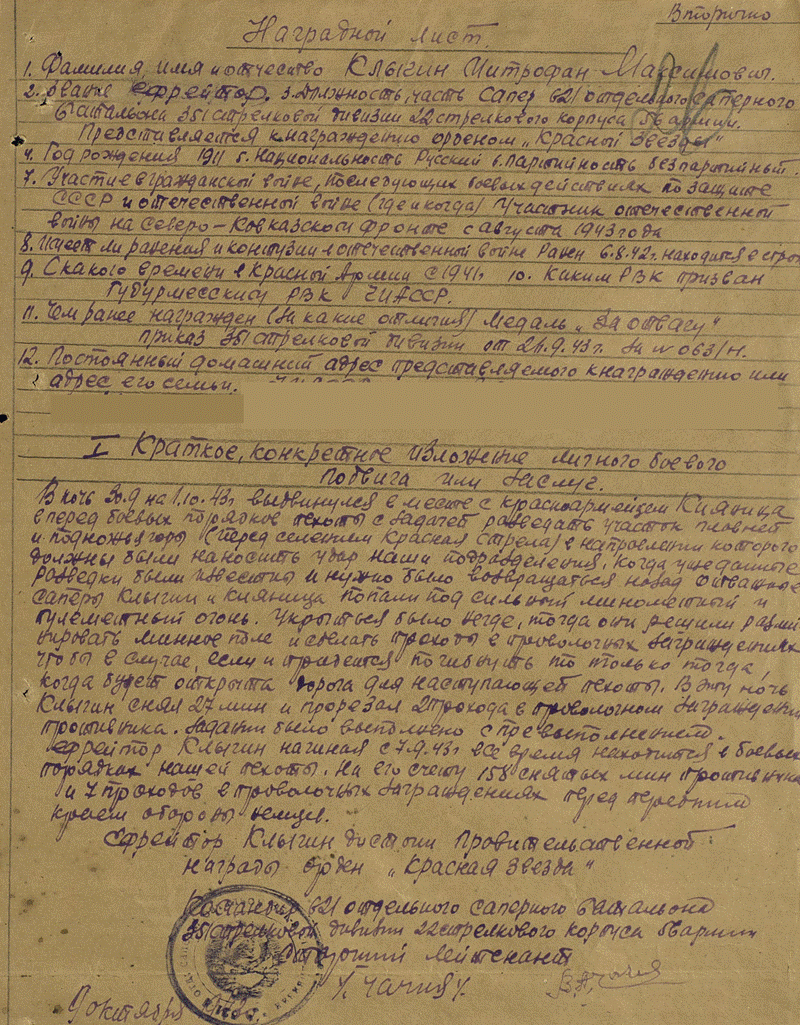 Вторично
Наградной лист.
1. Фамилия, имя и отчество Клыгин Митрофан Максимович.
2. Звание Ефрейтор. 3. Должность, часть Сапер 621 отдельного саперного
батальона 351 стрелковой дивизии 22 стрелкового корпуса 9 армии.
Представляется к награждению орденом „Красной Звезды"
4. Год рождения 1911 5. Национальность Русский 6. Партийность беспартийный.
7. Участие в гражданской войне, последующих боевых действиях по защите
СССР и отечественной войне (где и когда) Участник отечественной
войны на Северо-Кавказском фронте с августа 1943 года
8. Имеет ли ранения и контузии в отечественной войне Ранен 6.8.42г. находится в строю
9. С какого времени в Красной Армии с 1941г 10. Каким РВК призван
Гудермесским РВК ЧИАССР.
11. Чем ранее награжден (за какие отличия) Медаль „За отвагу"
приказ 351 стрелковой дивизии от 21.9.43г. за № 063/н.
12. Постоянный домашний адрес представляемого к награждению или
адрес его семьи.
I Краткое, конкретное изложение личного боевого
подвига или заслуг.
В ночь 30.9 на 1.10.43г выдвинулся в месте с красноармейцем Кияница
вперед боевых порядков пехоты с задачей разведать участок
и подножья горы (перед селением Красная Стрела) в направлении которого
должны были наносить удар наши подразделения. Когда уже данные
разведки были известны и нужно было возвращаться назад отважные
саперы Клыгин и Кияница попали под сильный минометный и
пулеметный огонь. Укрыться было негде, тогда они решили разми
нировать минное поле и сделать проходы в проволочных заграждениях
что бы в случае, если и придется погибнуть то только тогда,
когда будет открыта дорога для наступающей пехоты. В эту ночь
Клыгин снял 27 мин и прорезал 2 прохода в проволочном заграждении
противника. Задание было выполнено с превыполнением.
Ефрейтор Клыгин начиная с 7.9.43г все время находится в боевых
порядках нашей пехоты. На его счету 158 снятых мин противника
и 7 проходов в проволочных заграждениях перед передним
краем обороны немцев.
Ефрейтор Клыгин достоин правительственной
награды орден „Красная Звезда"
Командир 621 отдельного саперного батальона
351 стрелковой дивизии 22 стрелкового корпуса 9 армии
Старший лейтенант
/. Чачия /.
9 октября 1943г.